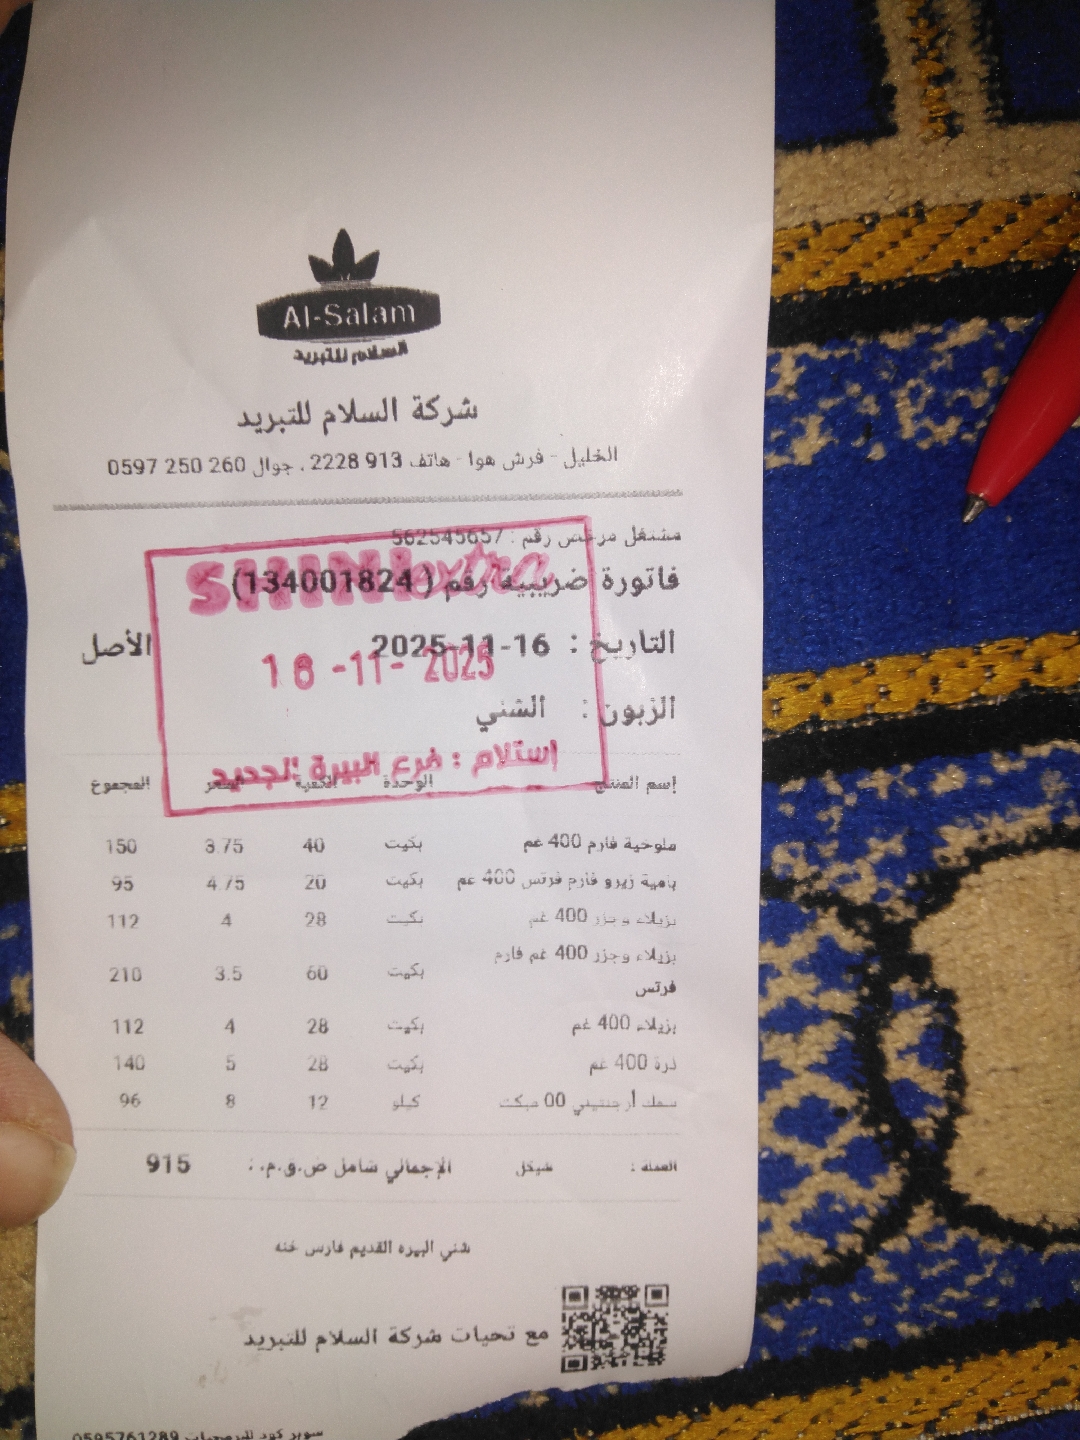 Al-Salam
السلام للتبريد
شركة السلام للتبريد
الخليل - فرش هوا - هاتف 913 2228 ، جوال 260 250 0597
مشتغل مرخص رقم : 562545657
SHINI extra
فاتورة ضريبية رقم (134001824)
التاريخ : 2025-11-16 الأصل
18 -11- 2025
الزبون : الشني
استلام : فرع البيرة الجديد
إسم المنتج الوحدة الكمية السعر المجموع
ملوخية فارم 400 غم بكيت 40 3.75 150
بامية زيرو فارم فرتس 400 غم بكيت 20 4.75 95
بزيلاء وجزر 400 غم بكيت 28 4 112
بزيلاء وجزر 400 غم فارم بكيت 60 3.5 210
فرتس
بزيلاء 400 غم بكيت 28 4 112
ذرة 400 غم بكيت 28 5 140
سمك أرجنتيني 00 مبكت كيلو 12 8 96
العملة : شيكل الإجمالي شامل ض.ق.م. : 915
شني البيره القديم فارس خنه
مع تحيات شركة السلام للتبريد
سوبر كود للبرمجيات 0595761289